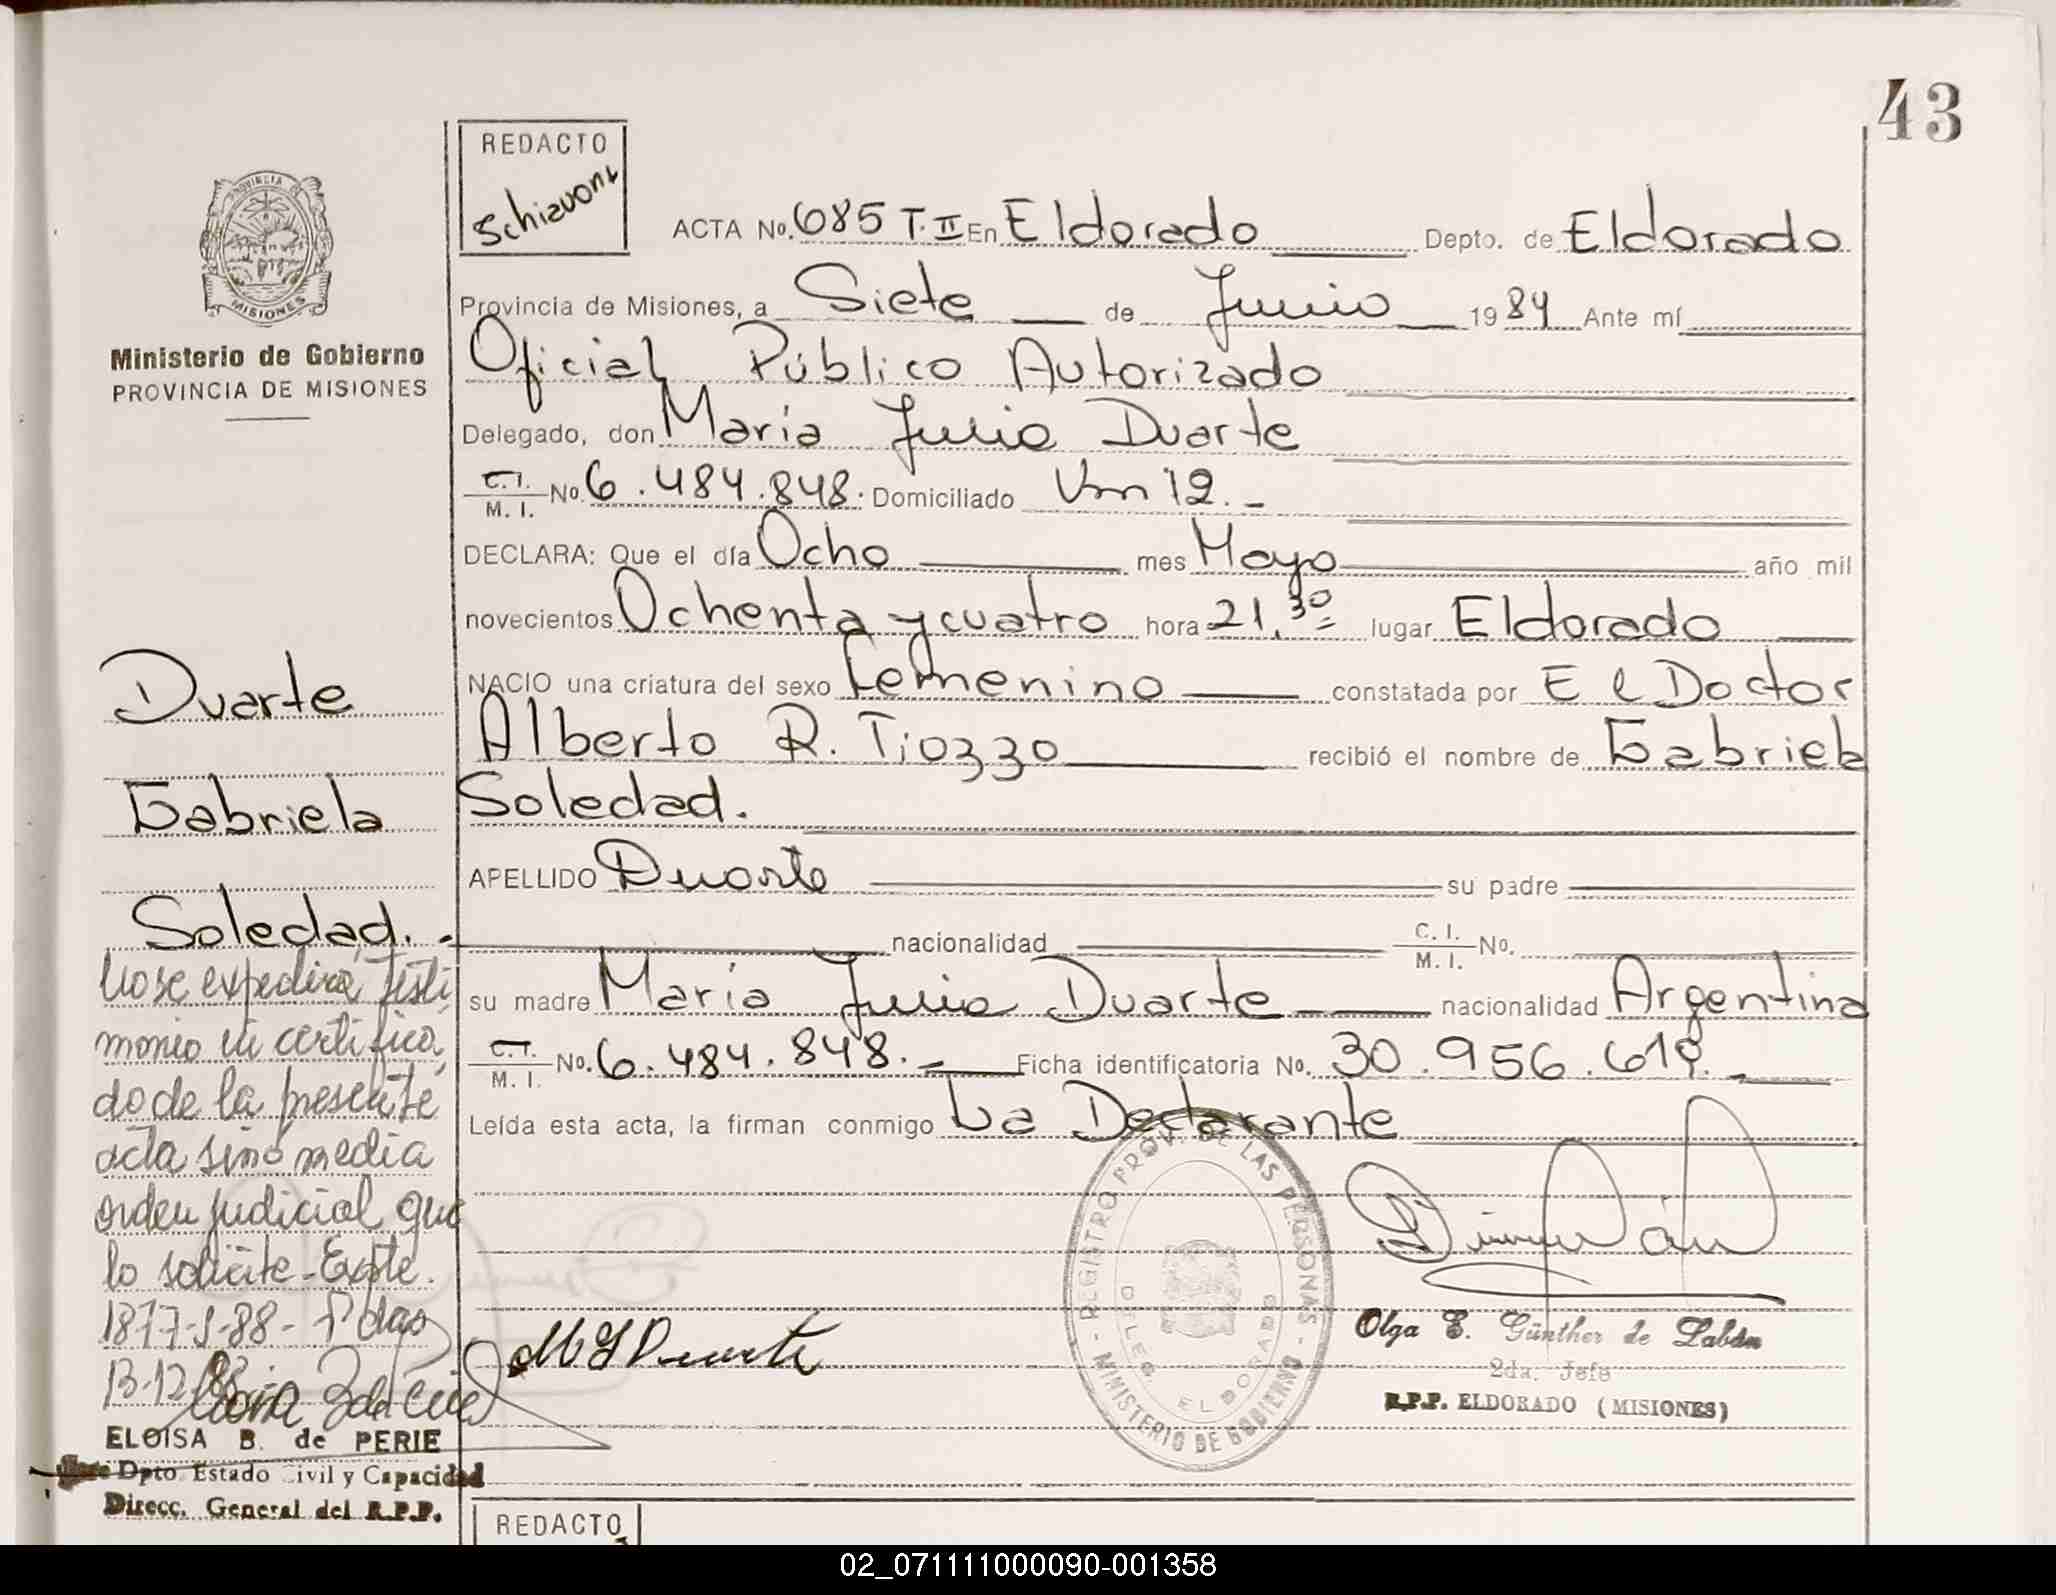 43
REDACTO
Schiavoni
ACTA No. 685 T. II En Eldorado Depto. de Eldorado
Provincia de Misiones, a Siete de Junio 1984 Ante mí
Oficial Público Autorizado
Delegado, don María Julia Duarte
C.I. M. I. No. 6.484.848. Domiciliado Km 12. -
DECLARA: Que el día Ocho mes Mayo año mil
novecientos Ochenta y cuatro hora 21,30 lugar Eldorado
NACIO una criatura del sexo Femenino constatada por El Doctor
Alberto R. Tiozzo recibió el nombre de Gabriela
Soledad.
APELLIDO Duarte su padre
nacionalidad C. I. M. I. No.
su madre María Julia Duarte nacionalidad Argentina
C.I. M. I. No. 6.484.848. Ficha identificatoria No. 30.956.619.
Leída esta acta, la firman conmigo La Declarante
PROVINCIA DE MISIONES
Ministerio de Gobierno
PROVINCIA DE MISIONES
Duarte
Gabriela
Soledad. -
No se expedirá testi
monio ni certifica
do de la presente
acta sino media
orden judicial que
lo solicite - Expte.
1877-S-88- Pdas
13-12-88-
ELOISA B. de PERIE
Jefe Dpto. Estado Civil y Capacidad
Direcc. General del R.P.P.
M J Duarte
REGISTRO PROV. DE LAS PERSONAS - MINISTERIO DE GOBIERNO -
DELEG. ELDORADO
Olga E. Günther de Labán
2da. Jefe
R.P.P. ELDORADO (MISIONES)
REDACTO
02_071111000090-001358